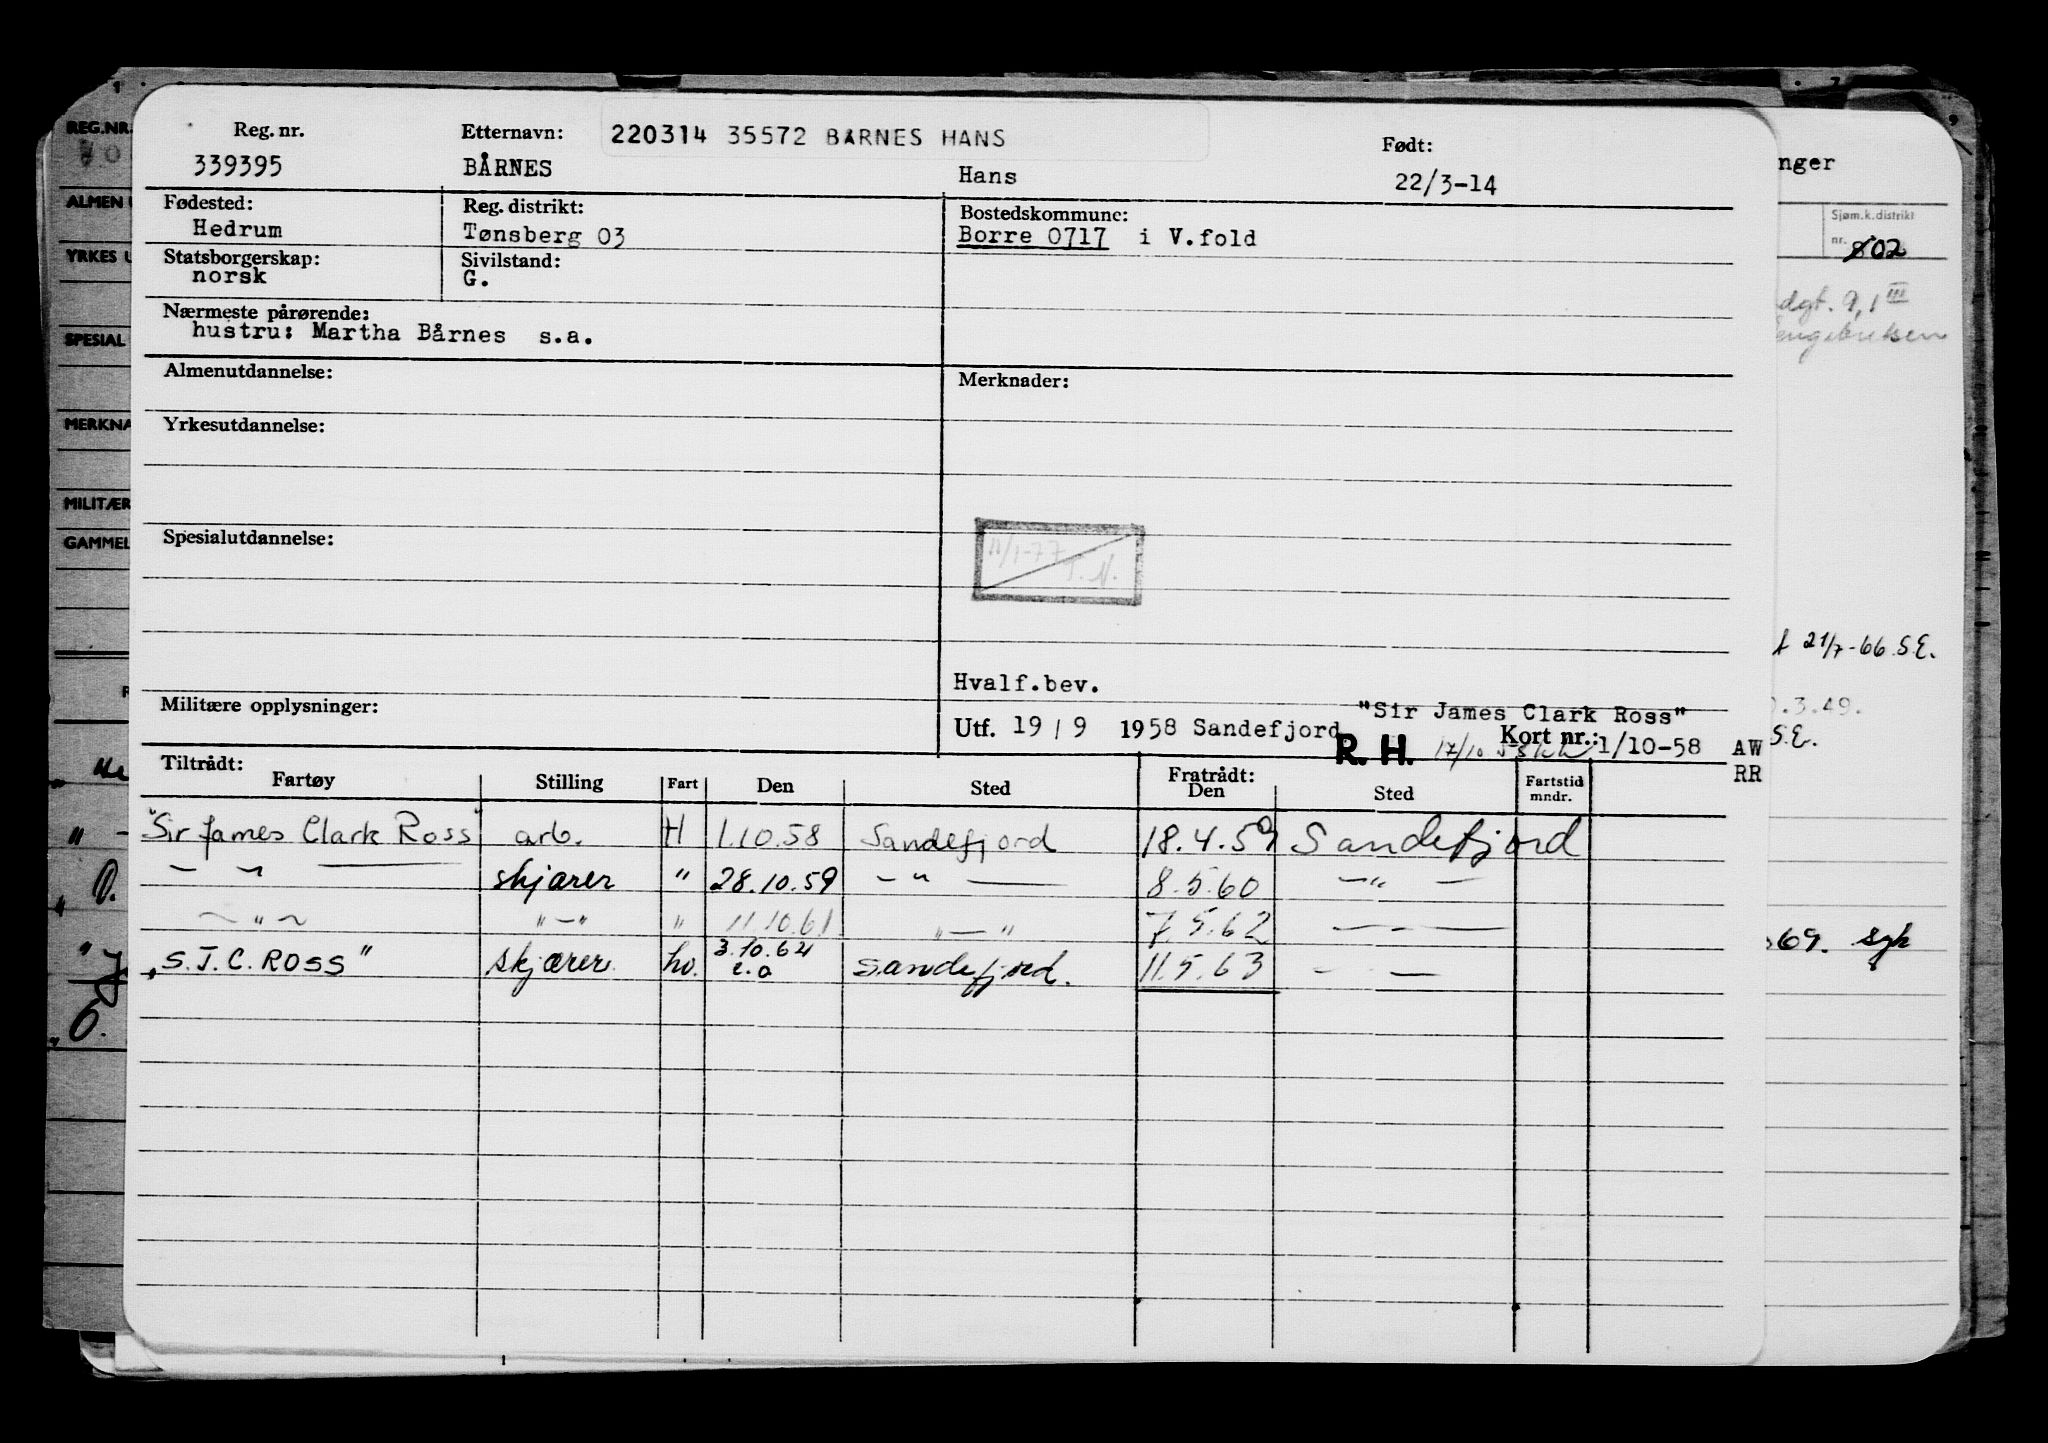 Reg. nr. Etternavn: 220314 35572 BÅRNES HANS Født:
339395 BÅRNES Hans 22/3-14
Fødested: Reg. distrikt: Bostedskommune:
Hedrum Tønsberg 03 Borre 0717 i V.fold
Statsborgerskap: Sivilstand:
norsk G.
Nærmeste pårørende:
hustru: Martha Bårnes s.a.
Almenutdannelse: Merknader:
Yrkesutdannelse:
Spesialutdannelse:
11/1-77 T.N.
Hvalf.bev.
Militære opplysninger:
"Sir James Clark Ross"
Utf. 19 / 9 1958 Sandefjord
R. H. 17/10 Kort nr.: 1/10-58 AW
RR
Tiltrådt: Fratrådt:
Fartøy Stilling Fart Den Sted Den Sted Fartstid mndr.
"Sir James Clark Ross" arb. H 1.10.58 Sandefjord 18.4.59 Sandefjord
— " — skjærer " 28.10.59 — " — 8.5.60 — " —
— " — " — " " 11.10.61 " — " 7.5.62 — - —
"S.J.C. ROSS" skjærer hv. 3.10.62 e.a Sandefjord. 11.5.63 - —
REG.NR.
ALMEN U
YRKES U
SPESIAL
MERKNA
MILITÆR
GAMMEL
nger
Sjøm.k.distrikt
nr. 802
dgt. 9, 1 III
engebretsen
21/7-66 S.E.
.3.49.
S.E.
69. Sgh